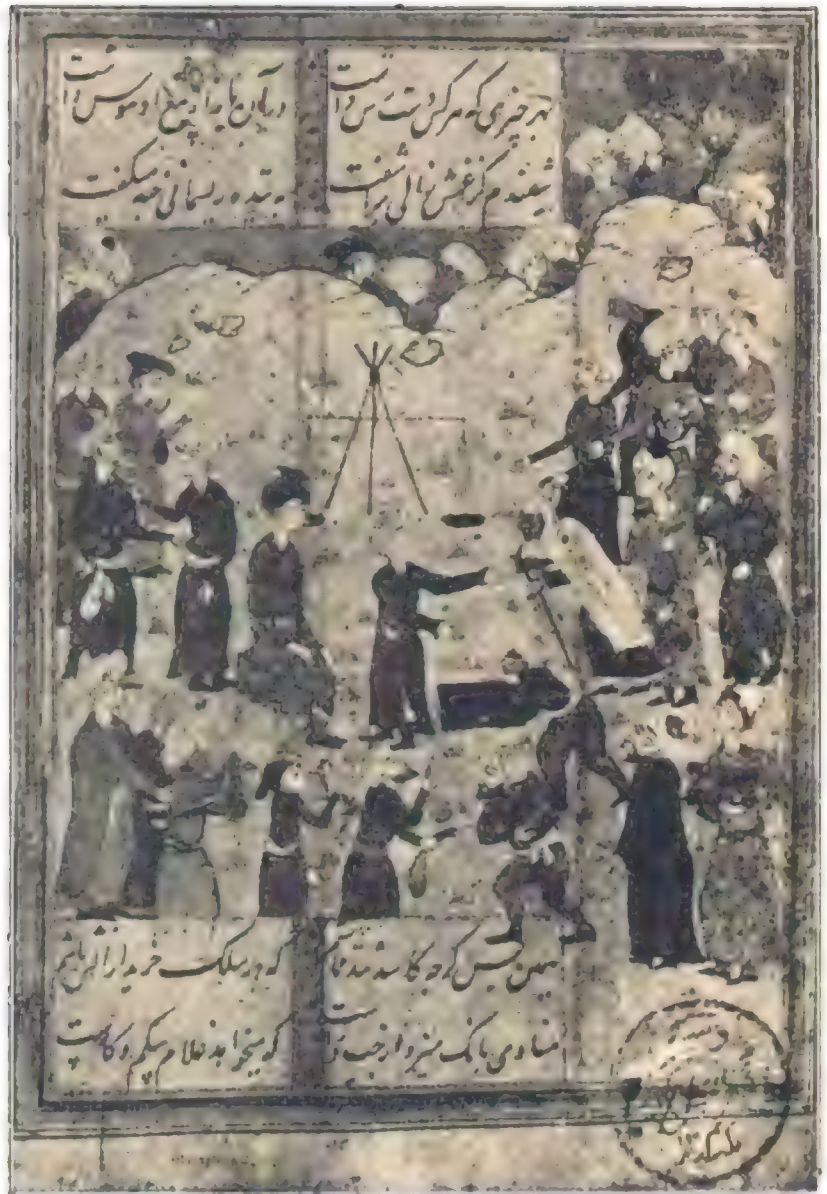 بهر چیزی که هر کس دسترس داشت در آن بازار بیع او هوس داشت
شنیدم کز غمش زالی برآشفت تنیده ریسمانی چند میگفت
همین بس گرچه کاسد شد قماشم که در سلک خریدارانش باشم
منادی بانگ میزد از چپ و راست که میخواهد غلام بیکم و کاست